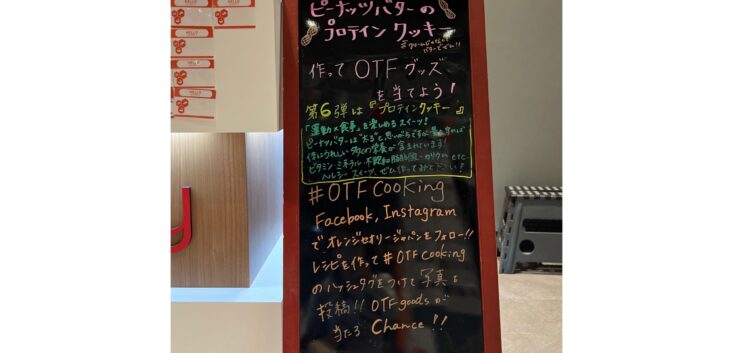 HELLO
HELLO
ピーナッツバターの
プロテイン クッキー
作って OTF グッズ
を当てよう!
第6弾は『プロテインクッキー』
「運動×食事」を楽しめるスイーツ!
ピーナッツバターは
体にうれしい 栄養が含まれています!
ビタミン・ミネラル・不飽和脂肪酸・カリウム etc
ヘルシー スイーツ、ぜひ作ってみて下さい!
#OTF Cooking
Facebook, Instagram
で オレンジセオリージャパンをフォロー!!
レシピを作って #OTF Cooking
のハッシュタグをつけて 写真を
投稿!! OTF goods が
当たる Chance!!